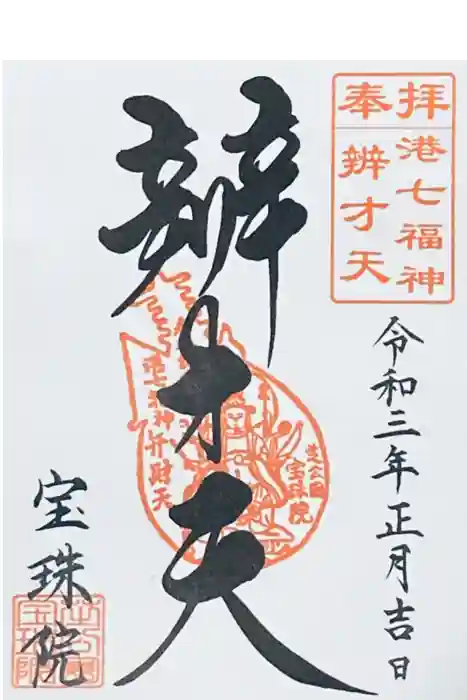 奉拝
港七福神
辨才天
令和三年正月吉日
辨才天
港七福神弁財天
芝公園
宝珠院
宝珠院